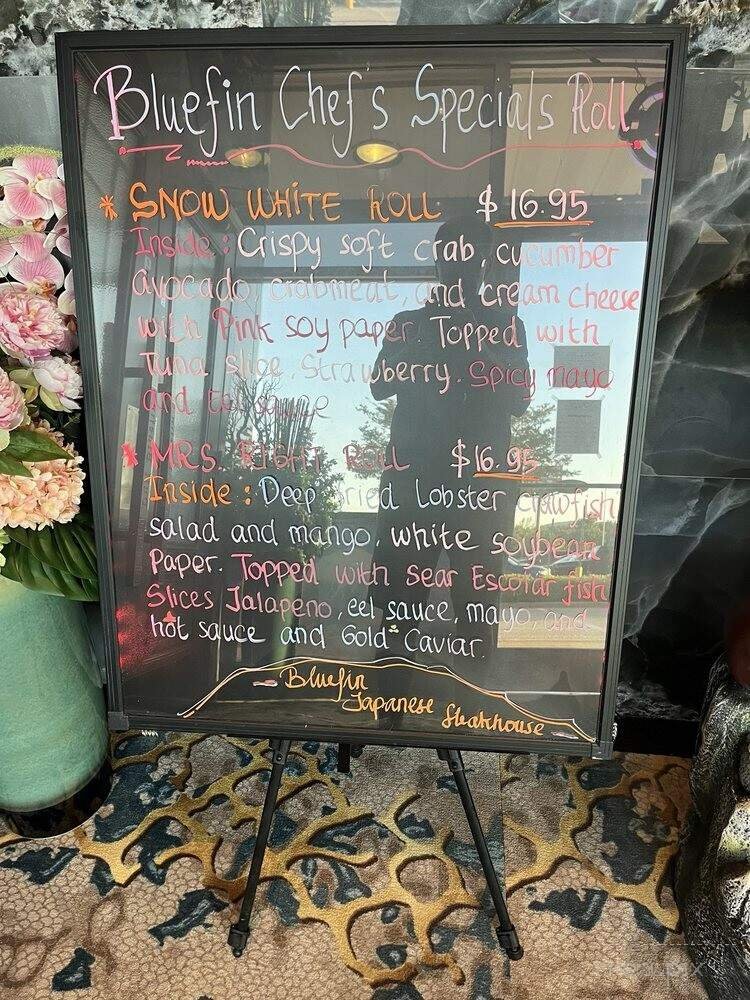 Bluefin Chef's Specials Roll
* SNOW WHITE ROLL $16.95
Inside: Crispy soft crab, cucumber
avocado, crabmeat, and cream cheese
with Pink soy paper. Topped with
Tuna slice, Strawberry. Spicy mayo
and eel sauce
* MRS. RIGHT ROLL $16.95
Inside: Deep fried Lobster crawfish
salad and mango, white soybean
Paper. Topped with sear Escolar fish
Slices Jalapeno, eel sauce, mayo, and
hot sauce and Gold Caviar.
Bluefin
Japanese Steakhouse